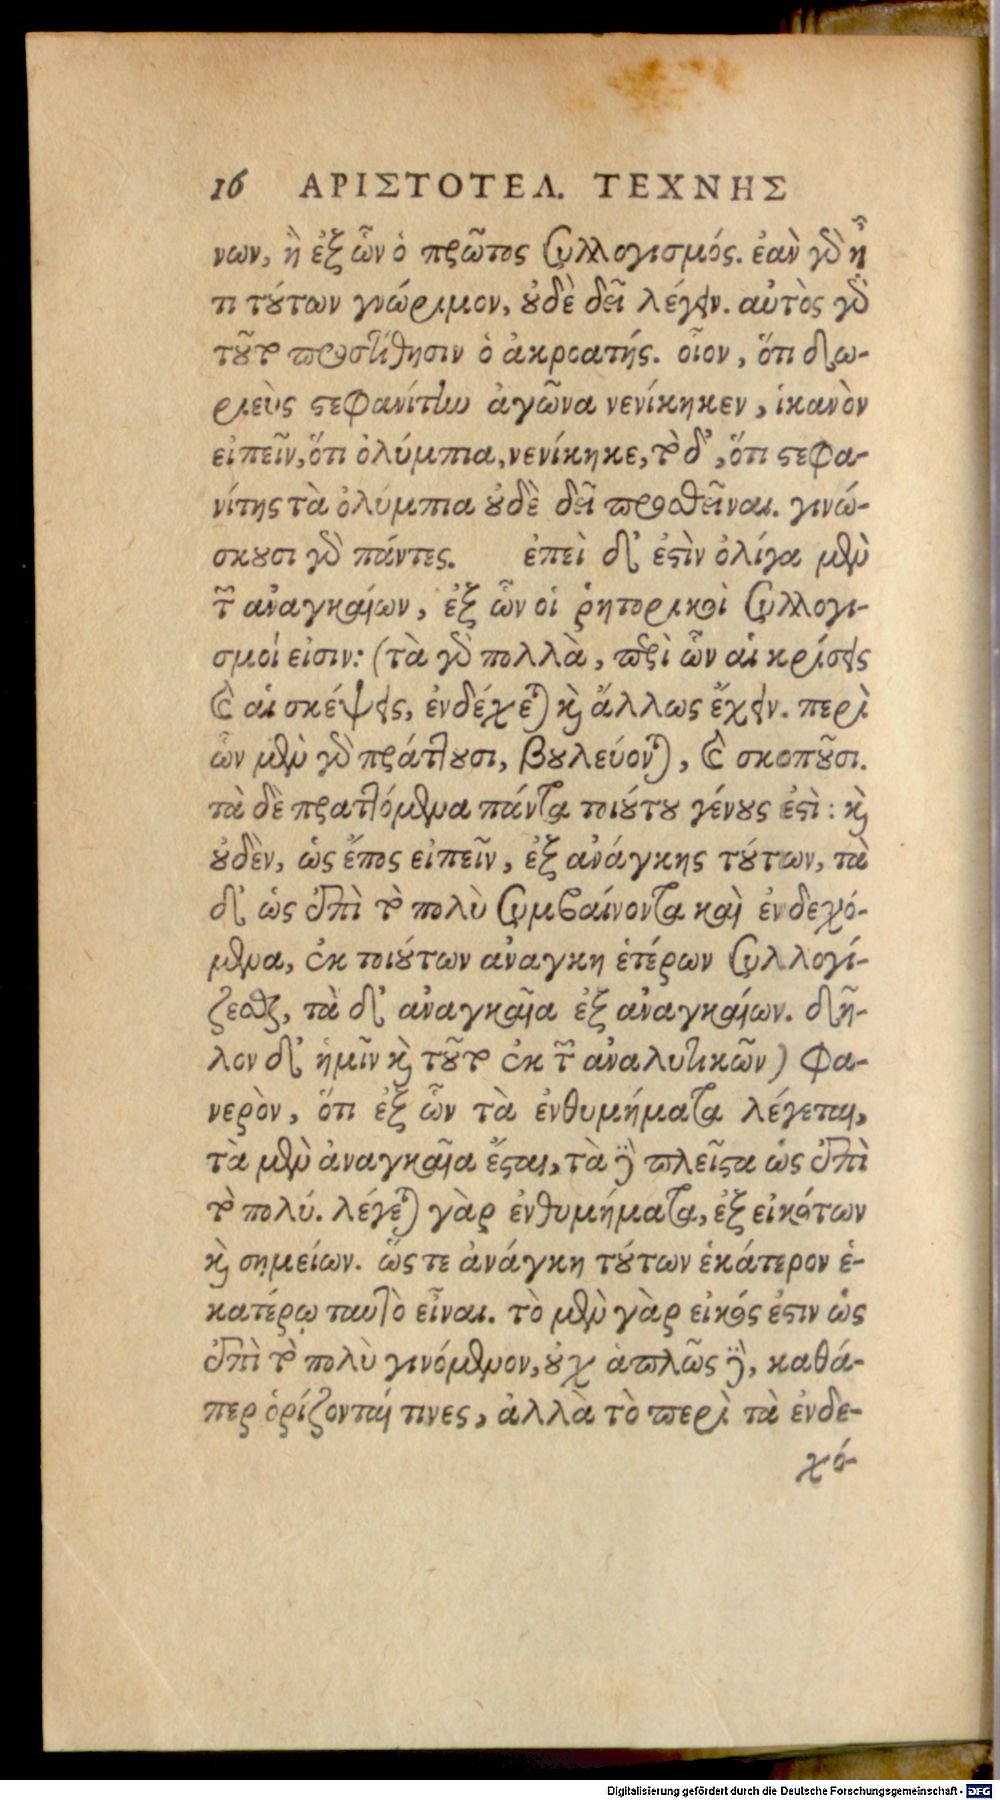 16 ΑΡΙΣΤΟΤΕΛ. ΤΕΧΝΗΣ
νων, ἢ ἐξ ὧν ὁ πρῶτος συλλογισμός. ἐὰν γὸ ᾖ
τι τȣ́των γνώριμον, ȣ̓δὲ δεῖ λέγειν. αὐτὸς γὸ
τȣ͂το προστίθησιν ὁ ἀκροατής. οἷον, ὅτι δω-
ριεὺς στεφανίτην ἀγῶνα νενίκηκεν, ἱκανὸν
εἰπεῖν, ὅτι ὀλύμπια, νενίκηκε, τὸ δ', ὅτι στεφα-
νίτης τὰ ὀλύμπια ȣ̓δὲ δεῖ προσθεῖναι. γινώ-
σκȣσι γὸ πάντες. ἐπεὶ δ' ἐστὶν ὀλίγα μὲν
τῶν ἀναγκαίων, ἐξ ὧν οἱ ῥητορικοὶ συλλογι-
σμοί εἰσιν: (τὰ γὸ πολλὰ, περὶ ὧν αἱ κρίσεις
καὶ αἱ σκέψεις, ἐνδέχεται καὶ ἄλλως ἔχειν. περὶ
ὧν μὲν γὸ πράττȣσι, βȣλεύονται, καὶ σκοπȣ͂σι.
τὰ δὲ πραττόμενα πάντα τοιȣ́τȣ γένȣς ἐστὶ: καὶ
ȣ̓δὲν, ὡς ἔπος εἰπεῖν, ἐξ ἀνάγκης τȣ́των, τὰ
δ' ὡς ἐπὶ τὸ πολὺ συμβαίνοντα καὶ ἐνδεχό-
μενα, ἐκ τοιȣ́των ἀνάγκη ἑτέρων συλλογί-
ζεσθαι, τὰ δ' ἀναγκαῖα ἐξ ἀναγκαίων. δῆ-
λον δ' ἡμῖν καὶ τȣ͂το ἐκ τῶν ἀναλυτικῶν) φα-
νερὸν, ὅτι ἐξ ὧν τὰ ἐνθυμήματα λέγεται,
τὰ μὲν ἀναγκαῖα ἔσται, τὰ δὲ πλεῖστα ὡς ἐπὶ
τὸ πολύ. λέγεται γὰρ ἐνθυμήματα, ἐξ εἰκότων
καὶ σημείων. ὥστε ἀνάγκη τȣ́των ἑκάτερον ἑ-
κατέρῳ ταυτὸ εἶναι. τὸ μὲν γὰρ εἰκός ἐστιν ὡς
ἐπὶ τὸ πολὺ γινόμενον, ȣ̓χ ἁπλῶς δὲ, καθά-
περ ὁρίζονταί τινες, ἀλλὰ τὸ περὶ τὰ ἐνδε-
χό-
Digitalisierung gefördert durch die Deutsche Forschungsgemeinschaft - DFG